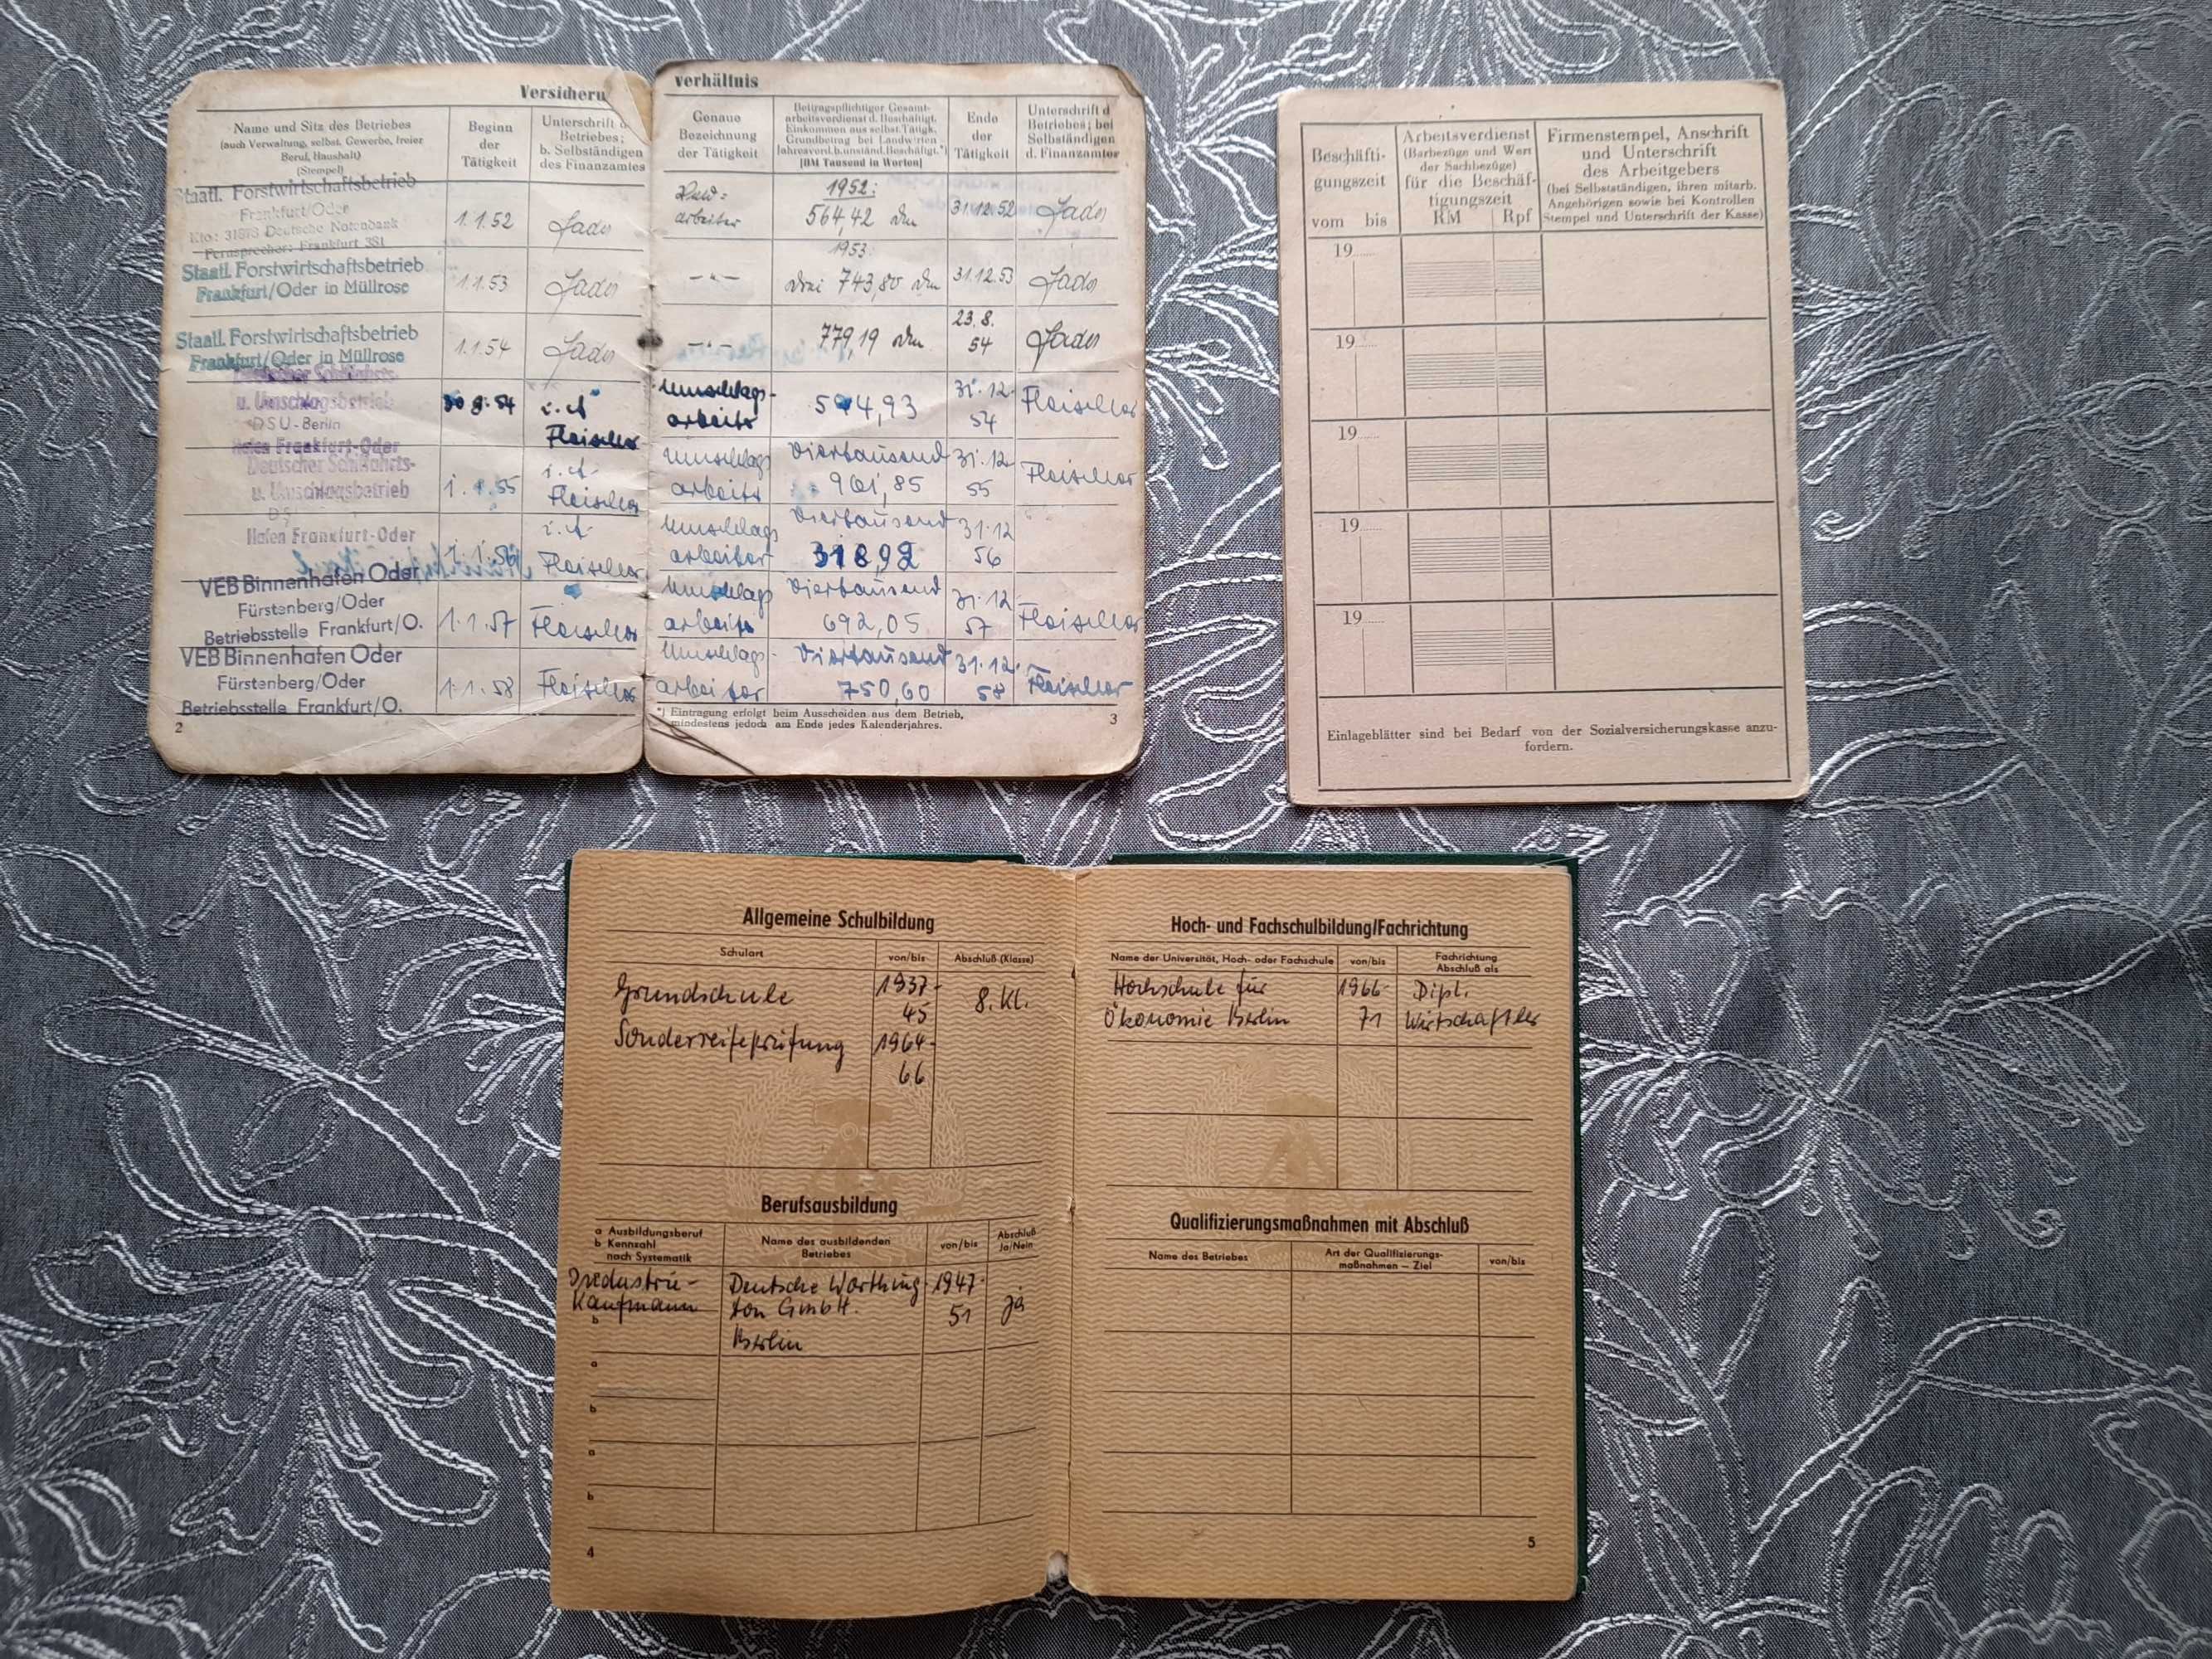 Versicheru
Name und Sitz des Betriebes
(auch Verwaltung, selbst. Gewerbe, freier
Beruf, Haushalt)
(Stempel)
Beginn
der
Tätigkeit
Unterschrift d.
Betriebes;
b. Selbständigen
des Finanzamtes
Staatl. Forstwirtschaftsbetrieb
Frankfurt/Oder
Kto: Deutsche Notenbank
Fernsprecher: Frankfurt 381
1.1.52
Staatl. Forstwirtschaftsbetrieb
Frankfurt/Oder in Müllrose
1.1.53
Staatl. Forstwirtschaftsbetrieb
Frankfurt/Oder in Müllrose
1.1.54
Deutscher Schiffahrts-
u. Umschlagsbetrieb
DSU-Berlin
Hafen Frankfurt-Oder
i. A.
Fleischer
Deutscher Schiffahrts-
u. Umschlagsbetrieb
1.1.55
i. A.
Fleischer
Hafen Frankfurt-Oder
1.1.56
i. A.
Fleischer
VEB Binnenhafen Oder
Fürstenberg/Oder
Betriebsstelle Frankfurt/O.
1.1.57
Fleischer
VEB Binnenhafen Oder
Fürstenberg/Oder
Betriebsstelle Frankfurt/O.
1.1.58
Fleischer
2
verhältnis
Genaue
Bezeichnung
der Tätigkeit
Beitragspflichtiger Gesamt-
arbeitsverdienst d. Beschäftigt.
Einkommen aus selbst. Tätigk.
Grundbeitrag bei Landwirten
Jahresverd. b. unständ. Beschäftigt.*)
[DM Tausend in Worten]
Ende
der
Tätigkeit
Unterschrift d
Betriebes; bei
Selbständigen
d. Finanzamtes
arbeiter
1952:
564,42
31.12.52
1953:
drei 743,80
31.12.53
779,19
23.8.
54
Umschlags-
arbeiter
31.12.
54
Fleischer
Umschlags
arbeiter
Viertausend
961,85
31.12
55
Fleischer
Umschlags
arbeiter
Viertausend
318,92
31.12
56
Umschlags
arbeiter
Viertausend
692,05
31.12
57
Fleischer
Umschlags-
arbeiter
Viertausend
750,60
31.12.
58
Fleischer
*) Eintragung erfolgt beim Ausscheiden aus dem Betrieb,
mindestens jedoch am Ende jedes Kalenderjahres.
3
Beschäfti-
gungszeit
vom bis
Arbeitsverdienst
(Barbezüge und Wert
der Sachbezüge)
für die Beschäf-
tigungszeit
RM Rpf
Firmenstempel, Anschrift
und Unterschrift
des Arbeitgebers
(bei Selbstständigen, ihren mitarb.
Angehörigen sowie bei Kontrollen
Stempel und Unterschrift der Kasse)
19......
19......
19......
19......
19......
Einlageblätter sind bei Bedarf von der Sozialversicherungskasse anzu-
fordern.
Allgemeine Schulbildung
Schulart
von/bis
Abschluß (Klasse)
Grundschule
1937-
45
8. Kl.
Sonderreifeprüfung
1964-
66
Berufsausbildung
a Ausbildungsberuf
b Kennzahl
nach Systematik
Name des ausbildenden
Betriebes
von/bis
Abschluß
Ja/Nein
Industrie-
Kaufmann
b
Deutsche Worthing-
ton GmbH.
Berlin
1947-
51
Ja
a
b
a
b
4
Hoch- und Fachschulbildung/Fachrichtung
Name der Universität, Hoch- oder Fachschule
von/bis
Fachrichtung
Abschluß als
Hochschule für
Ökonomie Berlin
1966-
71
Dipl.
Wirtschaftler
Qualifizierungsmaßnahmen mit Abschluß
Name des Betriebes
Art der Qualifizierungs-
maßnahmen – Ziel
von/bis
5